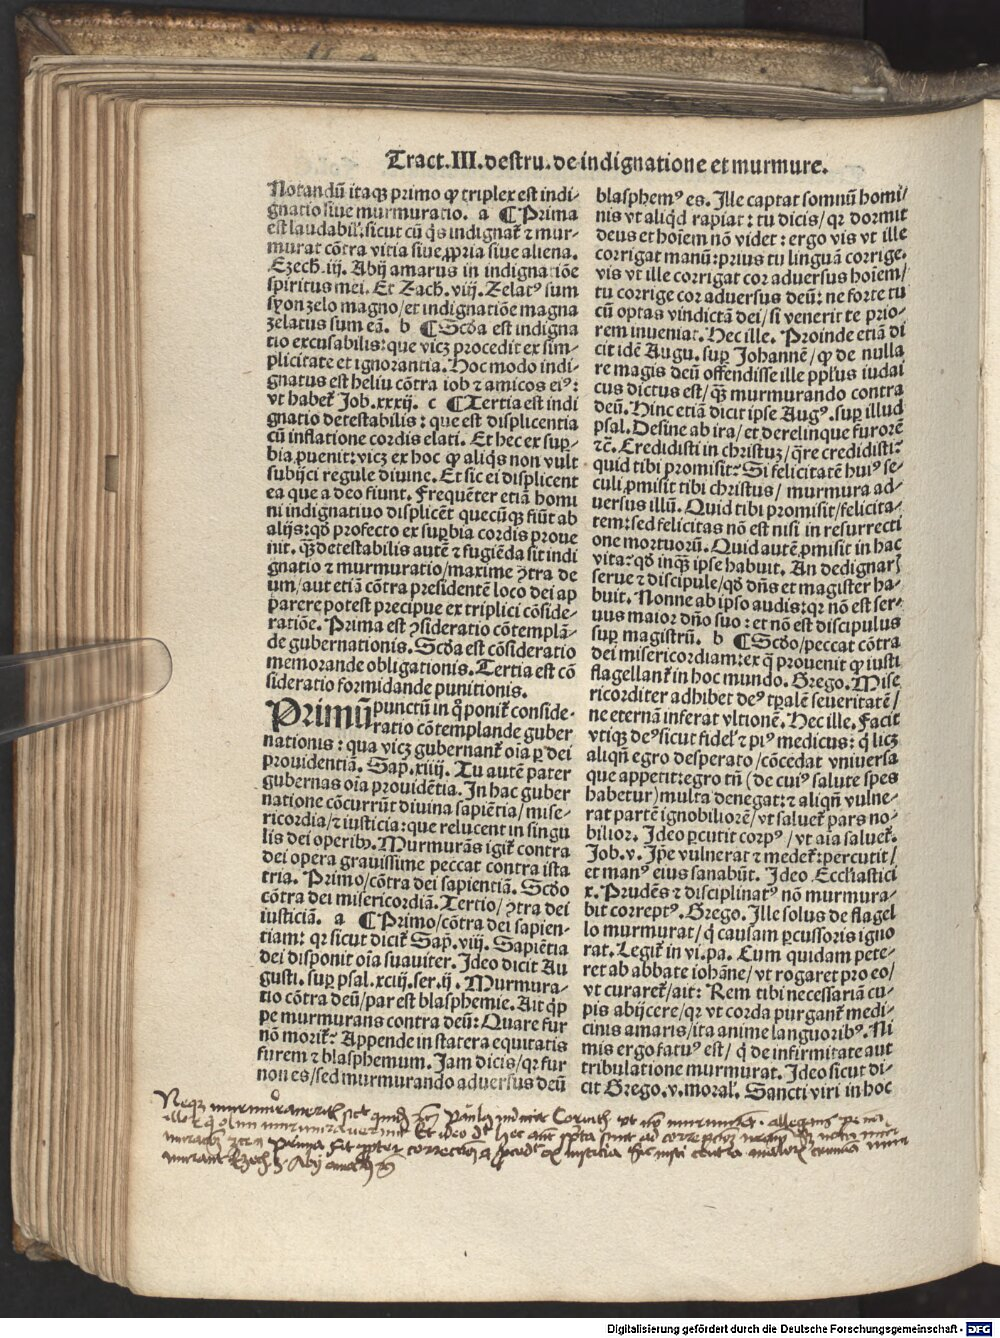 Tract.III.destru.de indignatione et murmure.
Notandū itaqꝫ primo ꝙ triplex est indi-
gnatio siue murmuratio. a ¶ Prima
est laudabil᷑. sicut cū q̇s indignat᷑ ⁊ mur-
murat cōtra vitia siue ꝓpria siue aliena.
Ezech̄. iij. Abij amarus in indignatiōe
spiritus mei. Et Zach̄. viij. Zelatꝰ sum
syon zelo magno/et indignatiōe magna
zelatus sum eā. b ¶ Scḋa est indigna
tio excusabilis: que vicꝫ procedit ex sim-
plicitate et ignorantia. Hoc modo indi-
gnatus est heliu cōtra iob ⁊ amicos eiꝰ:
vt habet᷑ Job.xxxij. c ¶ Tertia est indi
gnatio detestabilis: que est displicentia
cū inflatione cordis elati. Et hec ex sup̱-
bia ꝓuenit: vicꝫ ex hoc ꝙ aliq̇s non vult
subijci regule diuine. Et sic ei displicent
ea que a deo fiunt. Frequēter etiā homi
ni indignatiuo displicēt quecūqꝫ fiūt ab
alijs: qḋ profecto ex sup̱bia cordis proue
nit. q̄ꝫ detestabilis autē ⁊ fugiēda sit indi
gnatio ⁊ murmuratio/maxime ↄ̄tra de
um/aut etiā cōtra presidentē loco dei ap
parere potest precipue ex triplici cōside-
ratiōe. Prima est ↄ̄sideratio cōtemplā-
de gubernationis. Scḋa est cōsideratio
memorande obligationis. Tertia est cō
sideratio formidande punitionis.
Primū punctū in q̊ ponit᷑ conside-
ratio cōtemplande guber
nationis: qua vicꝫ gubernant᷑ oīa ꝑ dei
prouidentiā. Sap̄. xiiij. Tu autē pater
gubernas oīa prouidētia. In hac guber
natione cōcurrūt diuina sapiētia/mise-
ricordia/⁊ iusticia: que relucent in singu
lis dei operibꝫ. Murmurās igit᷑ contra
dei opera grauissime peccat contra ista
tria. Primo/cōtra dei sapientiā. Scḋo
cōtra dei misericordiā. Tertio/ↄ̄tra dei
iusticiā. a ¶ Primo/cōtra dei sapien-
tiam: qꝛ sicut dicit᷑ Sap̄. viij. Sapiētia
dei disponit oīa suauiter. Ideo dicit Au
gusti. sup̱ psal. xciij. ser. ij. Murmura-
tio cōtra deū/par est blasphemie. Ait q̄p
pe murmurans contra deū: Quare fur
nō morit᷑? Appende in statera equitatis
furem ⁊ blasphemum. Jam dicis/qꝛ fur
non es/sed murmurando aduersus deū
blasphemꝰ es. Ille captat somnū homi/
nis vt aliqḋ rapiat: tu dicis/qꝛ dormit
deus et hoīem nō videt: ergo vis vt ille
corrigat manū: prius tu linguā corrige.
vis vt ille corrigat cor aduersus hoīem/
tu corrige cor aduersus deū: ne forte tu
cū optas vindictā dei/si venerit te prio-
rem inueniat. Hec ille. Proinde etiā di
cit idē Augu. sup̱ Johannē/ꝙ de nulla
re magis deū offendisse ille pp̄lus iudai
cus dictus est/q̄ꝫ murmurando contra
deū. Hinc etiā dicit ipse Augꝰ. sup̱ illud
psal. Desine ab ira/et derelinque furorē
⁊c̄. Credidisti in christuꝫ/q̄re credidisti?
quid tibi promisit? Si felicitatē huiꝰ se-
culi ꝓmisit tibi christus/ murmura ad-
uersus illū. Quid tibi promisit/felicita-
tem: sed felicitas nō est nisi in resurrecti
one mortuorū. Quid autē ꝓmisit in hac
vita: qḋ inqꝫ ipse habuit. An dedignarꝭ
serue ⁊ discipule/qḋ dn̄s et magister ha-
buit. Nonne ab ipso audis: qꝛ nō est ser-
uus maior dn̄o suo: et nō est discipulus
sup̱ magistrū. b ¶ Scḋo/peccat cōtra
dei misericordiam: ex q̄ prouenit ꝙ iusti
flagellant᷑ in hoc mundo. Grego. Mise
ricorditer adhibet deꝰ tp̄alē seueritatē/
ne eternā inferat vltionē. Hec ille. Facit
vtiqꝫ deꝰ sicut fidelꝭ ⁊ piꝰ medicus: q̇ licꝫ
aliqn̄ egro desperato/cōcedat vniuersa
que appetit: egro tn̄ (de cuiꝰ salute spes
habetur) multa denegat: ⁊ aliqn̄ vulne-
rat partē ignobiliorē/vt saluet᷑ pars no-
bilior. Ideo ꝑcutit corpꝰ/vt aīa saluet᷑.
Job. v. Ip̄e vulnerat ⁊ medet᷑: percutit/
et manꝰ eius sanabūt. Ideo Ecc̄liastici
x. Prudēs ⁊ disciplinatꝰ nō murmura-
bit correptꝰ. Grego. Ille solus de flagel
lo murmurat/q̇ causam ꝑcussoris igno
rat. Legit᷑ in vi. pa. Cum quidam pete-
ret ab abbate iohāne/vt rogaret pro eo/
vt curaret᷑/ait: Rem tibi necessariā cu-
pis abijcere/qꝛ vt corda purgant᷑ medi-
cinis amaris/ita anime languoribꝰ. Ni
mis ergo fatuꝰ est/ q̇ de infirmitate aut
tribulatione murmurat. Ideo sicut di-
cit Grego. v. moral᷑. Sancti viri in hoc